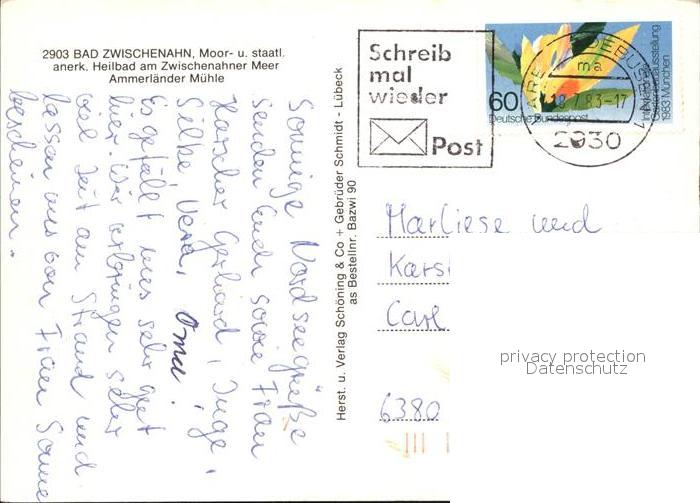 2903 BAD ZWISCHENAHN, Moor- u. staatl.
anerk. Heilbad am Zwischenahner Meer
Ammerländer Mühle
Sonnige Nordseegrüße
senden Euch sowie Frau
Gerhard, Inge,
Silke, Oma!
Es gefällt uns sehr gut
hier. Wir verbringen sehr
viel Zeit am Strand und
lassen uns von Frau Sonne
bescheinen.
Herst. u. Verlag Schöning & Co + Gebrüder Schmidt - Lübeck
as Bestellnr. Bazwi 90
Schreib
mal
wieder
Post
60
Deutsche Bundespost
Internationale
Gartenbauausstellung
1983 München
ma
.7.83-17
2930
Marliese und
Carl
6380
privacy protection
Datenschutz